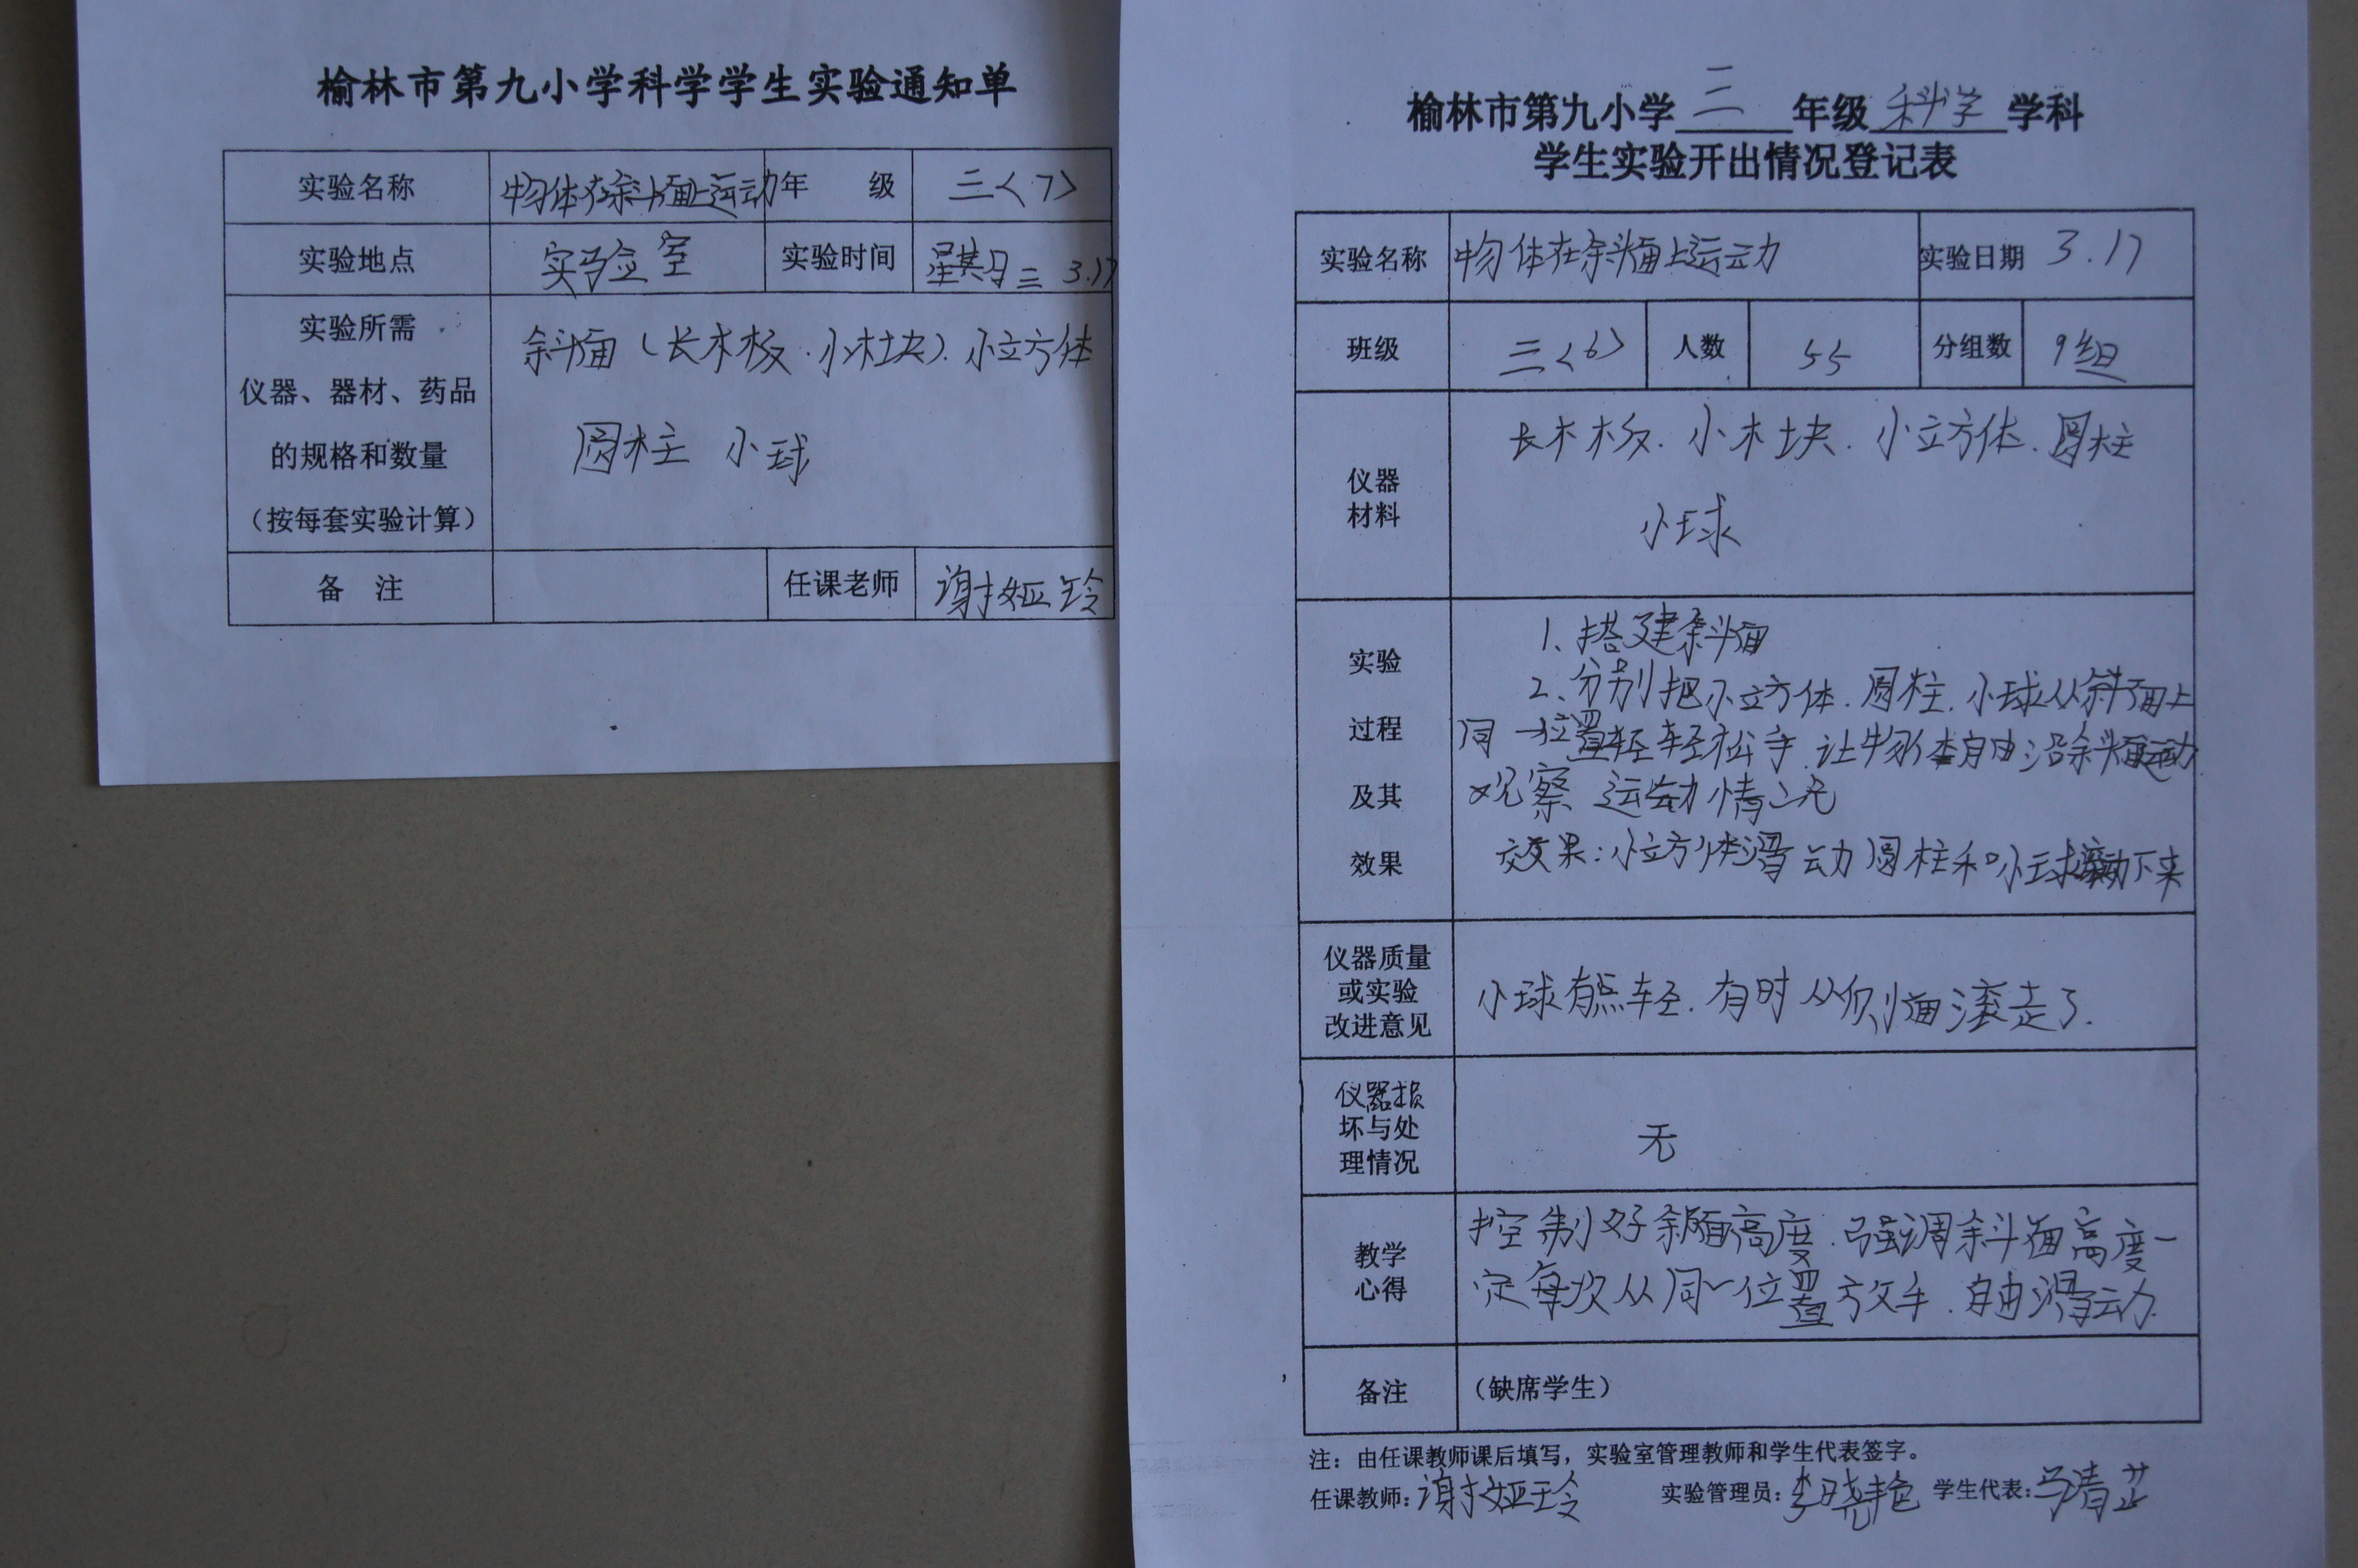 榆林市第九小学科学学生实验通知单
实验名称 物体在斜面上运动 年 级 三〈7〉
实验地点 实验室 实验时间 星期三 3.17
实验所需
仪器、器材、药品
的规格和数量
（按每套实验计算）
斜面（长木板.小木块）.小立方体
圆柱 小球
备 注 任课老师 谢娅玲
榆林市第九小学 三 年级 科学 学科
学生实验开出情况登记表
实验名称 物体在斜面上运动 实验日期 3.17
班级 三〈6〉 人数 55 分组数 9组
仪器
材料
长木板.小木块.小立方体.圆柱
小球
实验
过程
及其
效果
1、搭建斜面
2、分别把小立方体.圆柱.小球从斜面上
同一位置轻轻松手.让物体自由沿斜面运动
观察运动情况
效果：小立方体滑动 圆柱和小球滚动下来
仪器质量
或实验
改进意见
小球有点轻.有时从侧面滚走了.
仪器损
坏与处
理情况
无
教学
心得
控制好斜面高度.强调斜面高度一
定每次从同一位置放手.自由滑动.
备注 （缺席学生）
注：由任课教师课后填写，实验室管理教师和学生代表签字。
任课教师：谢娅玲 实验管理员：李晓艳 学生代表：马清芷